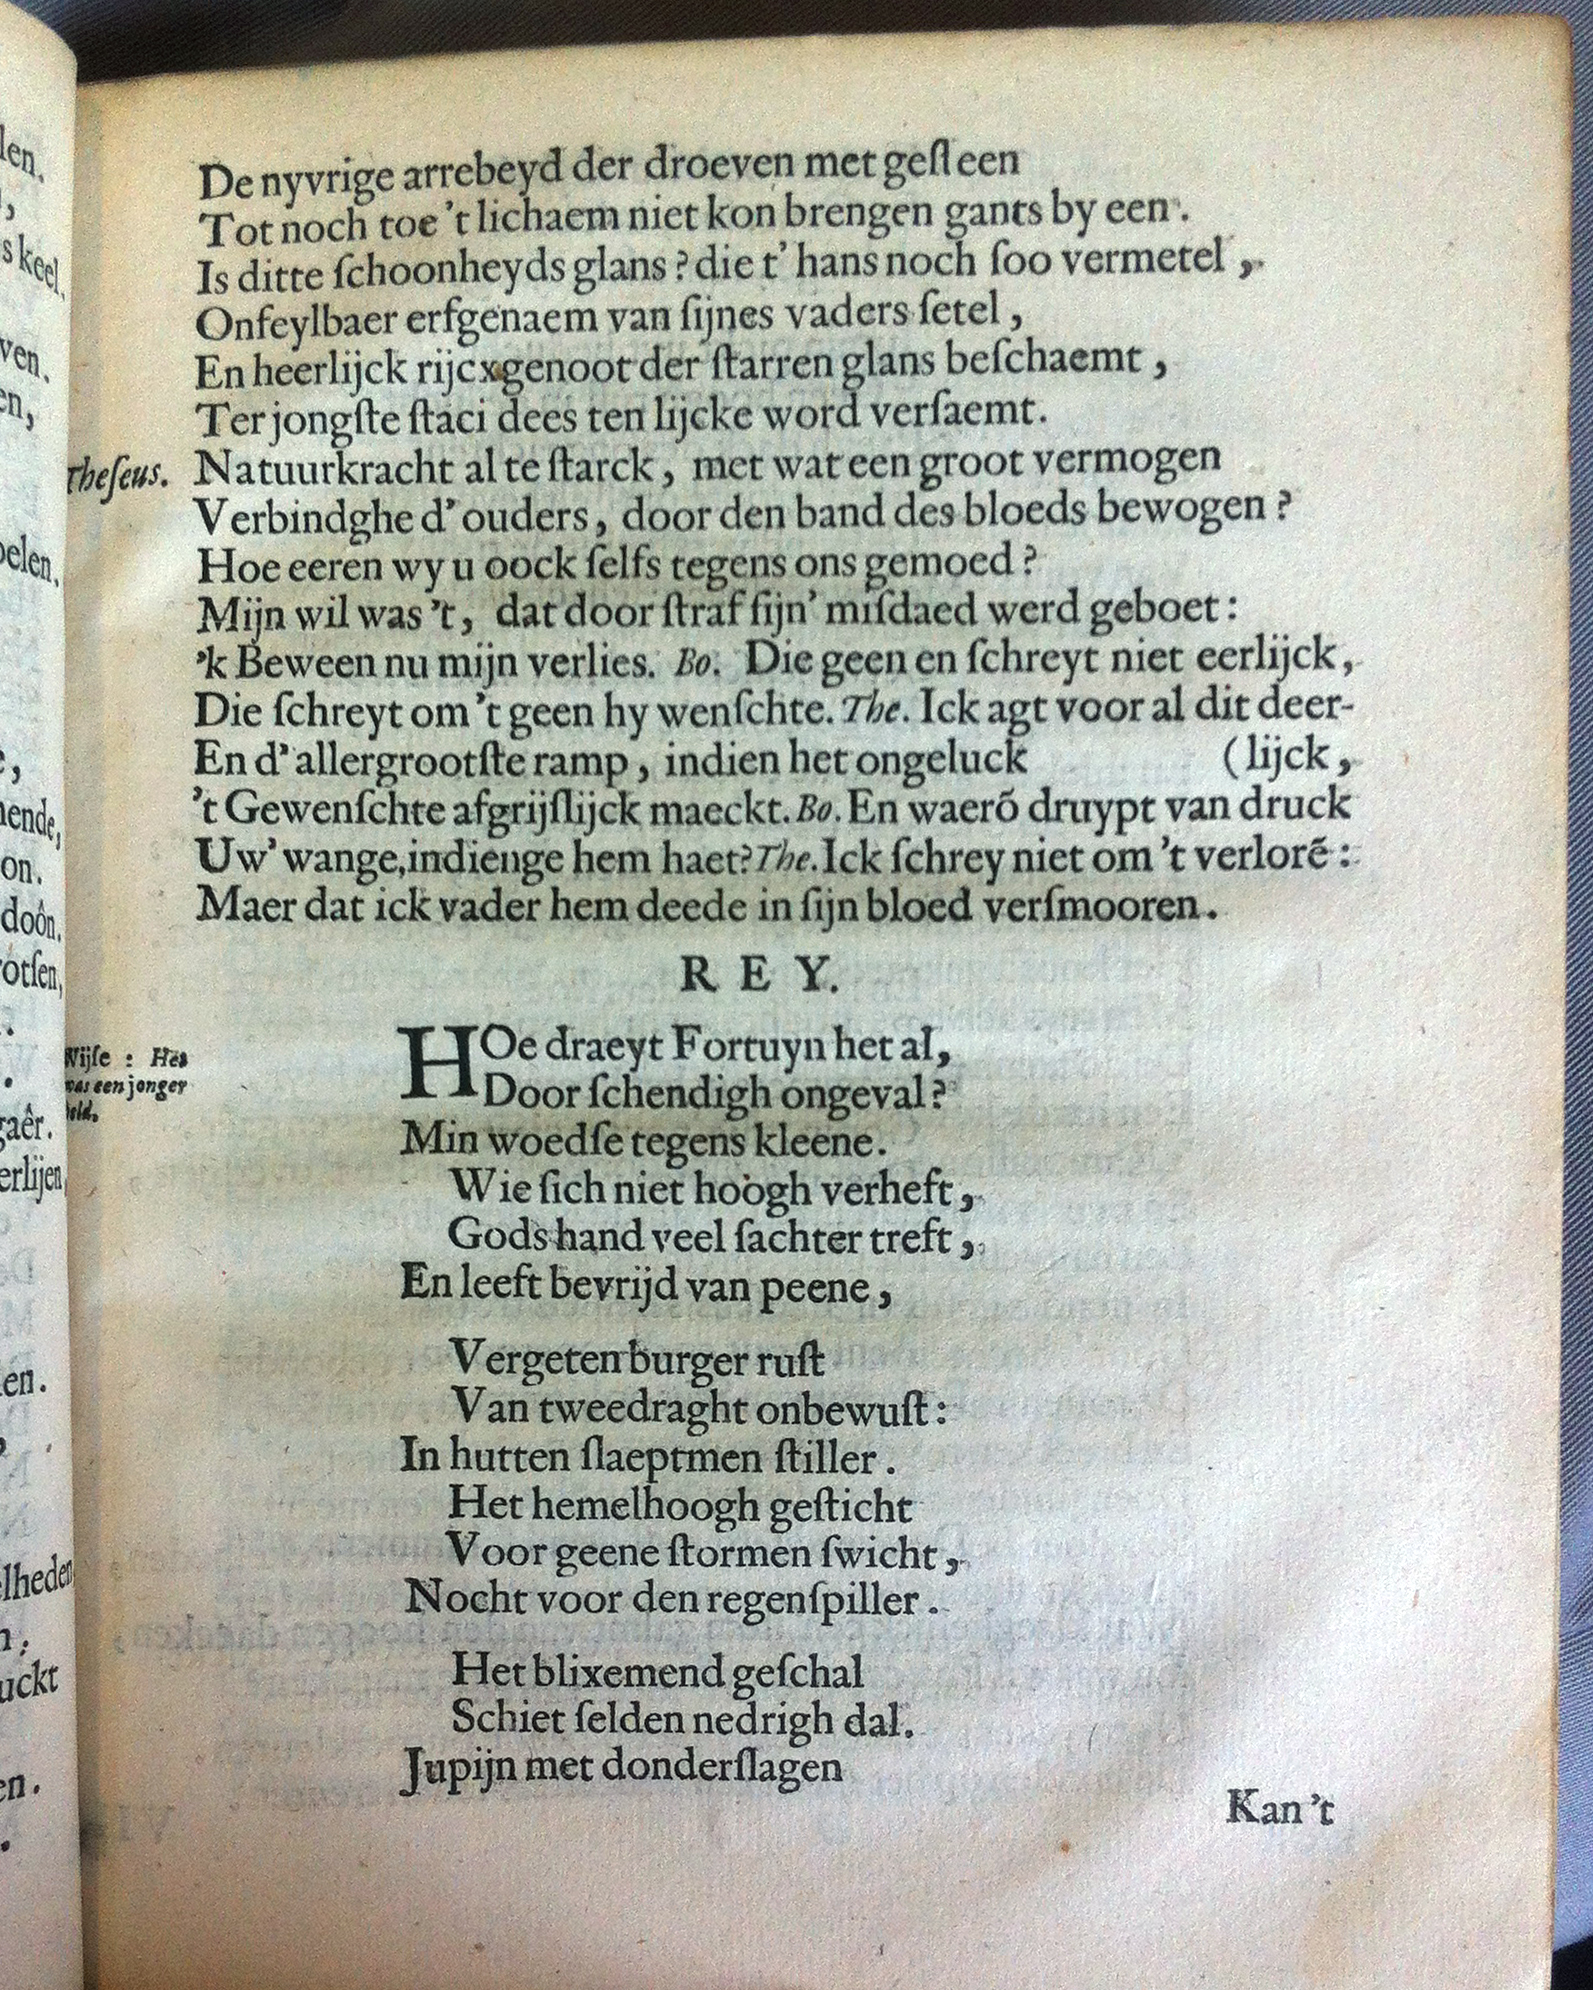 De nyvrige arrebeyd der droeven met geſleen
Tot noch toe 't lichaem niet kon brengen gants by een.
Is ditte ſchoonheyds glans? die t' hans noch ſoo vermetel,
Onfeylbaer erfgenaem van ſijnes vaders ſetel,
En heerlijck rijcxgenoot der ſtarren glans beſchaemt,
Ter jongſte ſtaci dees ten lijcke word verſaemt.
Theſeus. Natuurkracht al te ſtarck, met wat een groot vermogen
Verbindghe d' ouders, door den band des bloeds bewogen?
Hoe eeren wy u oock ſelfs tegens ons gemoed?
Mijn wil was 't, dat door ſtraf ſijn' miſdaed werd geboet:
'k Beween nu mijn verlies. Bo. Die geen en ſchreyt niet eerlijck,
Die ſchreyt om 't geen hy wenſchte. The. Ick agt voor al dit deer-
En d' allergrootſte ramp, indien het ongeluck (lijck,
't Gewenſchte afgrijſlijck maeckt. Bo. En waerõ druypt van druck
Uw' wange, indienge hem haet? The. Ick ſchrey niet om 't verlorẽ:
Maer dat ick vader hem deede in ſijn bloed verſmooren.
REY.
Wijſe: Het
was een jonger
held.
HOe draeyt Fortuyn het al,
Door ſchendigh ongeval?
Min woedſe tegens kleene.
Wie ſich niet hoogh verheft,
Gods hand veel ſachter treft,
En leeft bevrijd van peene,
Vergeten burger ruſt
Van tweedraght onbewuſt:
In hutten ſlaeptmen ſtiller.
Het hemelhoogh geſticht
Voor geene ſtormen ſwicht,
Nocht voor den regenſpiller.
Het blixemend geſchal
Schiet ſelden nedrigh dal.
Jupijn met donderſlagen
Kan 't